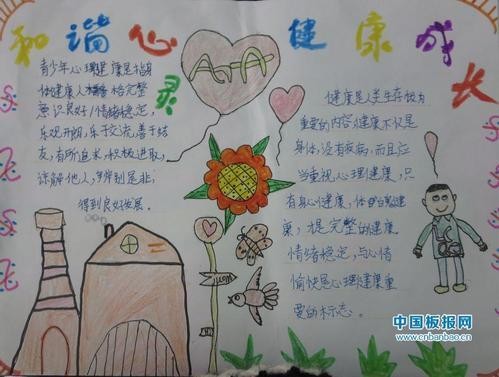 和谐心灵
健康成长
青少年心理健康是指身
体健康人格完整
意识良好情绪稳定,
乐观开朗,乐于交流,善于结
友,有所追求,积极进取,
谅解他人,明辨是非,
得到良好发展。
健康是人类生存极为
重要的内容,健康不仅是
身体没有疾病,而且应
当重视心理健康,只
有身心健康,体
康,才是完整的健康。
情绪稳定,与心情
愉快是心理健康重
要的标志。
中国板报网
www.cnbanbao.cn